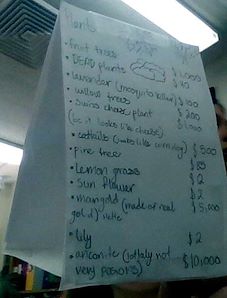 Plants
• fruit trees $1,000
• DEAD plants $10
• lavander (mosquito killer) $100
• willow trees $200
• swiss cheese plant
(bc it looks like cheese) $1,000
• cattails (looks like corn dog) $500
• pine tree $85
• Lemon grass $2
• Sun flower $2
• marigold (made of real $5,000
gold)
• lily $2
• anconite (totlaly not
very poisonis) $10,000